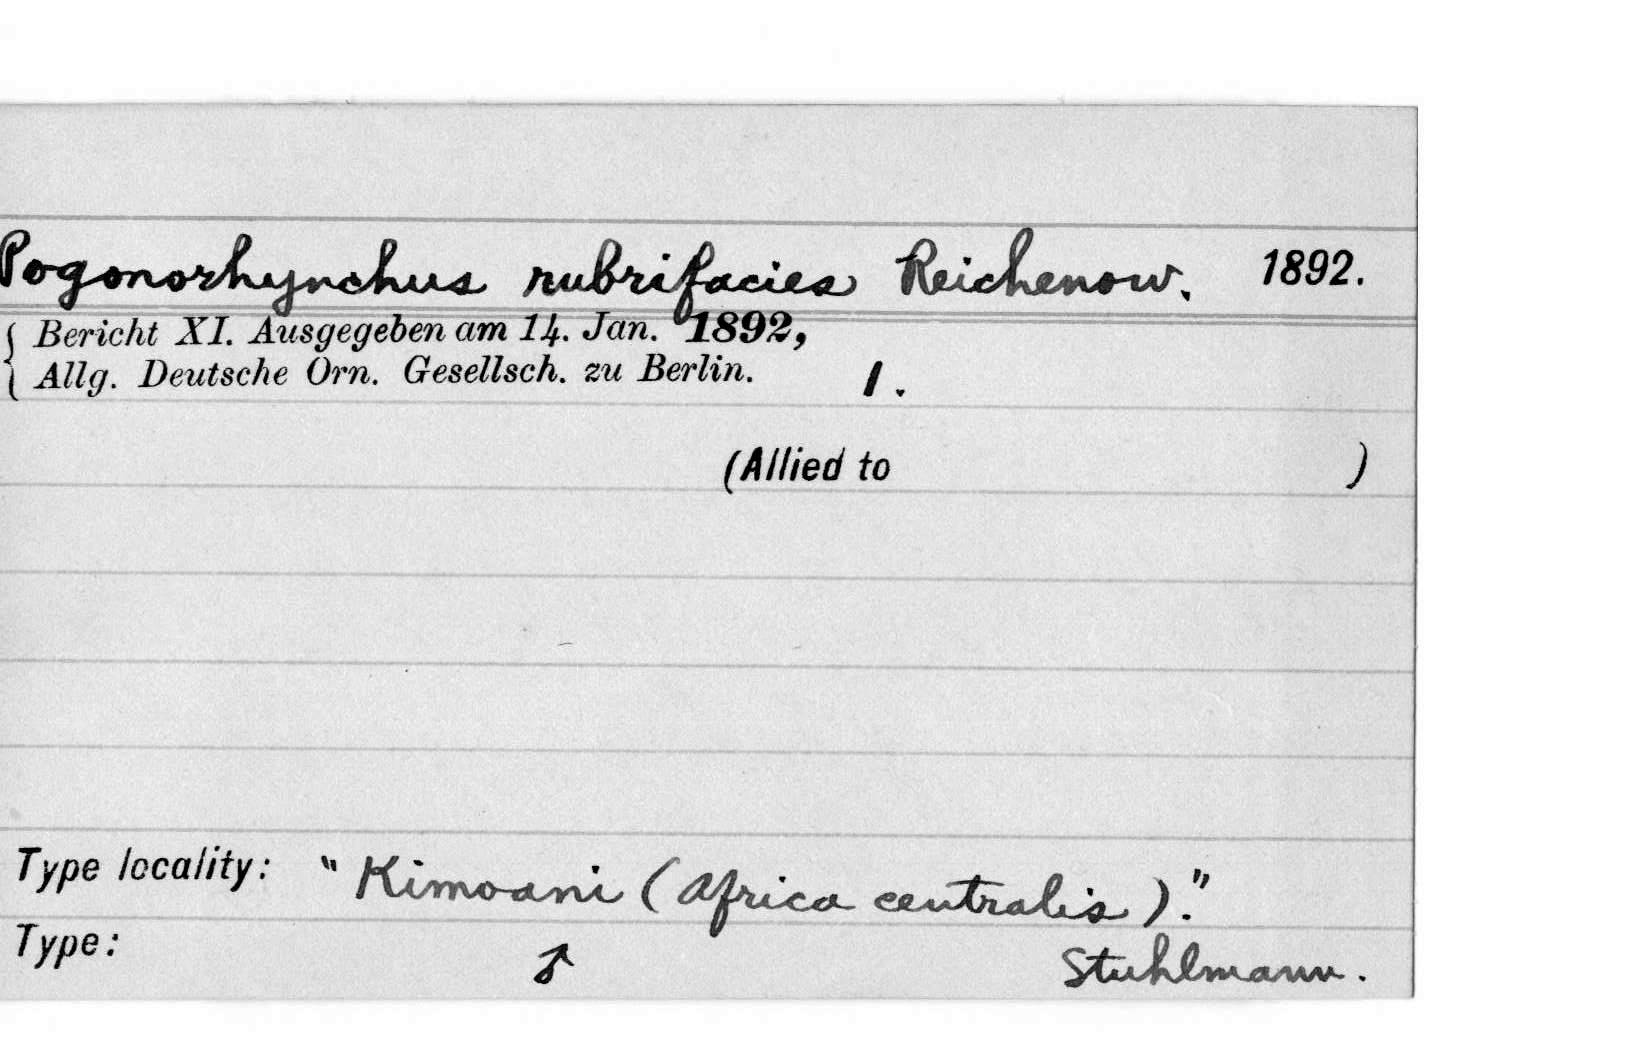 Pogonorhynchus rubrifacies Reichenow. 1892.
{ Bericht XI. Ausgegeben am 14. Jan. 1892,
{ Allg. Deutsche Orn. Gesellsch. zu Berlin. 1.
(Allied to )
Type locality: "Kimoani (Africa centralis)."
Type: ♂ Stuhlmann.